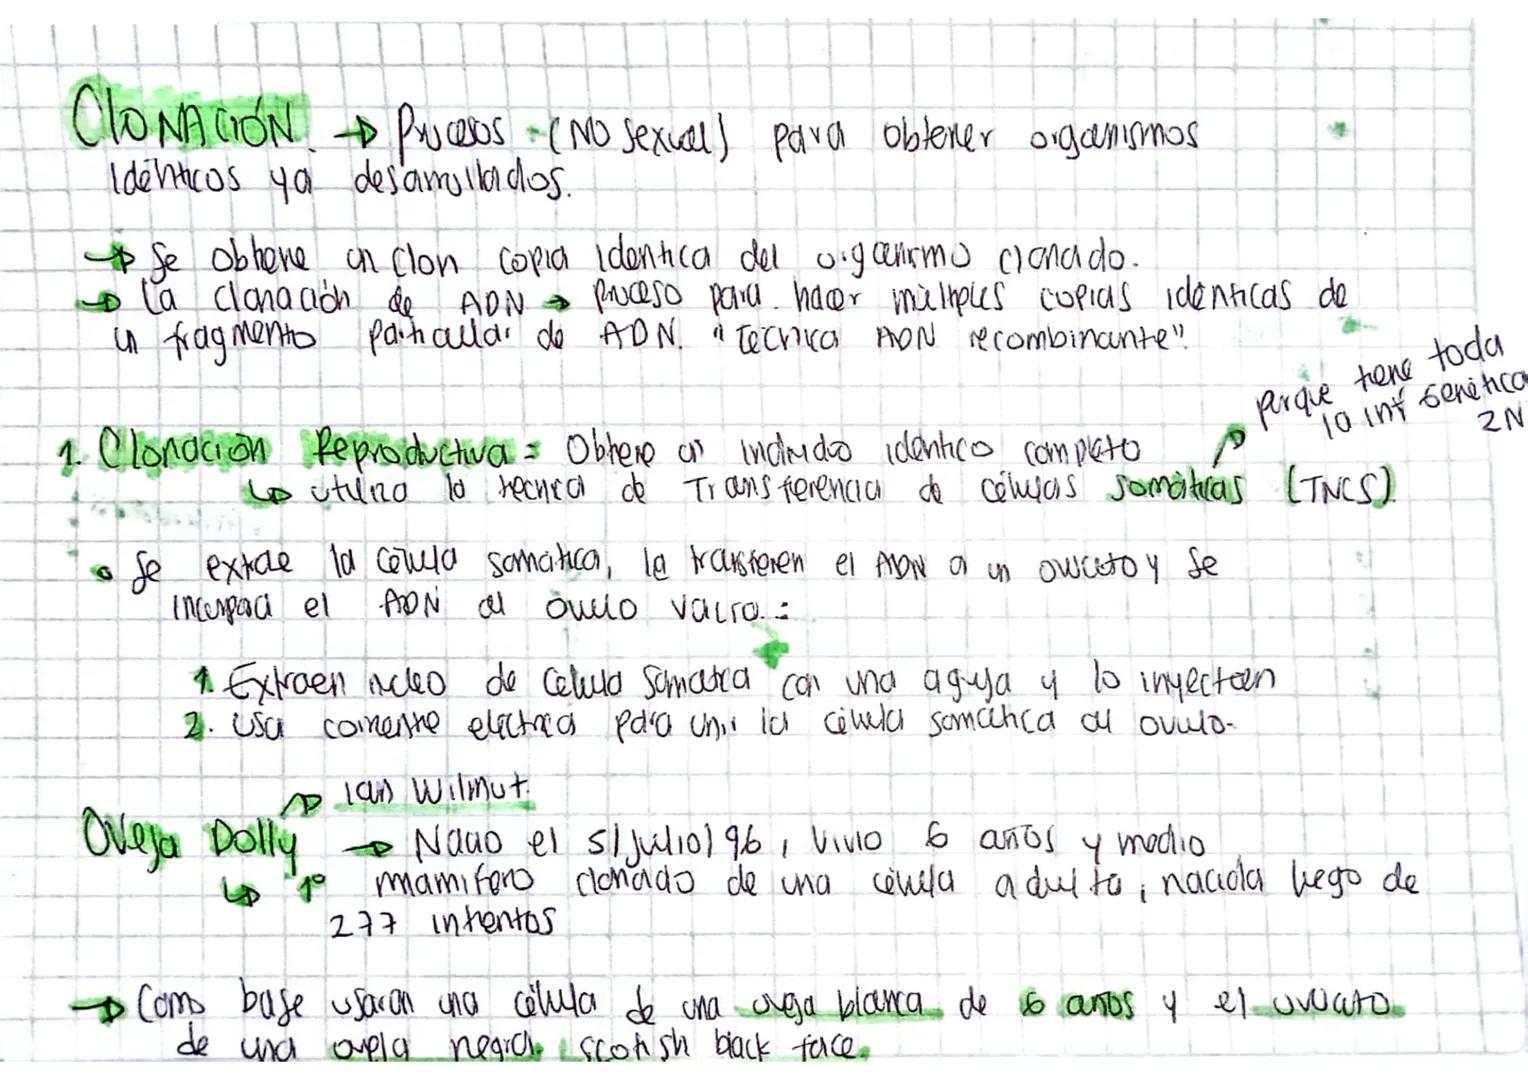 CloNACIÓN. → Procesos (NO sexual) para obtener organismos
Idénticos ya desarrollados.
→ Se obtiene un clon copia identica del organismo clonado.
→ La clonación de ADN → Proceso para hacer múltiples copias idénticas de
un fragmento particular de ADN. "Tecnica ADN recombinante".
porque tiene toda
la inf Genética
2N
1. Clonación Reproductiva = Obtiene un individuo idéntico completo
↳ utiliza la tecnica de Transferencia de células somáticas (TNCS)
• Se extrae la célula somática, le transfieren el ADN a un ovocito y se
incorpora el ADN al óvulo vacio. :
1. Extraen núcleo de Celula Somatica con una aguja y lo inyectan
2. Usa corriente electrica para unir la célula somática al ovulo.
Ian Wilmut.
Oveja Dolly → Nacio el 5/julio/96, vivio 6 años y medio
↳ 1º mamifero clonado de una célula adulta, nacida luego de
277 intentos
→ Como base usaron una célula de una oveja blanca de 6 años y el ovocito
de una oveja negra. scotish black face.